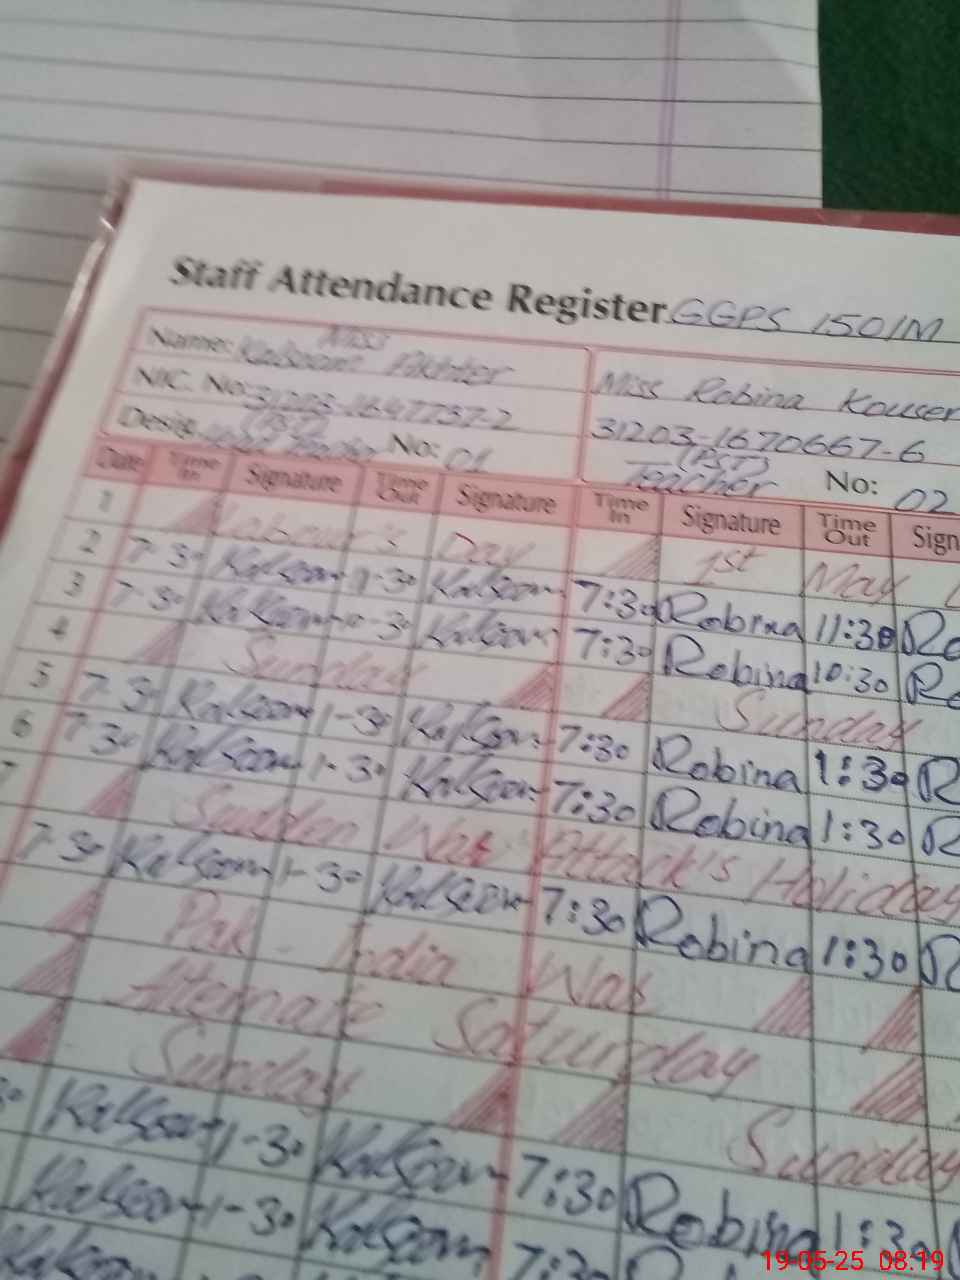 Staff Attendance Register GGPS 150/M
Name: Miss Kalsoom Akhter Miss Robina Kouser
NIC. No: 31203-1670667-6
Desig. (PST) No: 01 (PST) Teacher No: 02
Date Time In Signature Time Out Signature Time In Signature Time Out Sign
1 Labour's Day 1st May
2 7-30 Kalsoom 11-30 Kalsoom 7:30 Robina 11:30 Ro
3 7-30 Kalsoom 10-30 Kalsoom 7:30 Robina 10:30 Ro
4 Sunday Sunday
5 7-30 Kalsoom 1-30 Kalsoom 7:30 Robina 1:30 R
6 7-30 Kalsoom 1-30 Kalsoom 7:30 Robina 1:30 R
7 Sudden War Attack's Holiday
7-30 Kalsoom 1-30 Kalsoom 7:30 Robina 1:30 R
Pak - India War
Alternate Saturday
Sunday Sunday
Kalsoom 1-30 Kalsoom 7:30 Robina 1:30
Kalsoom 1-30 Kalsoom 7:30
Kalsoom
19-05-25 08:19